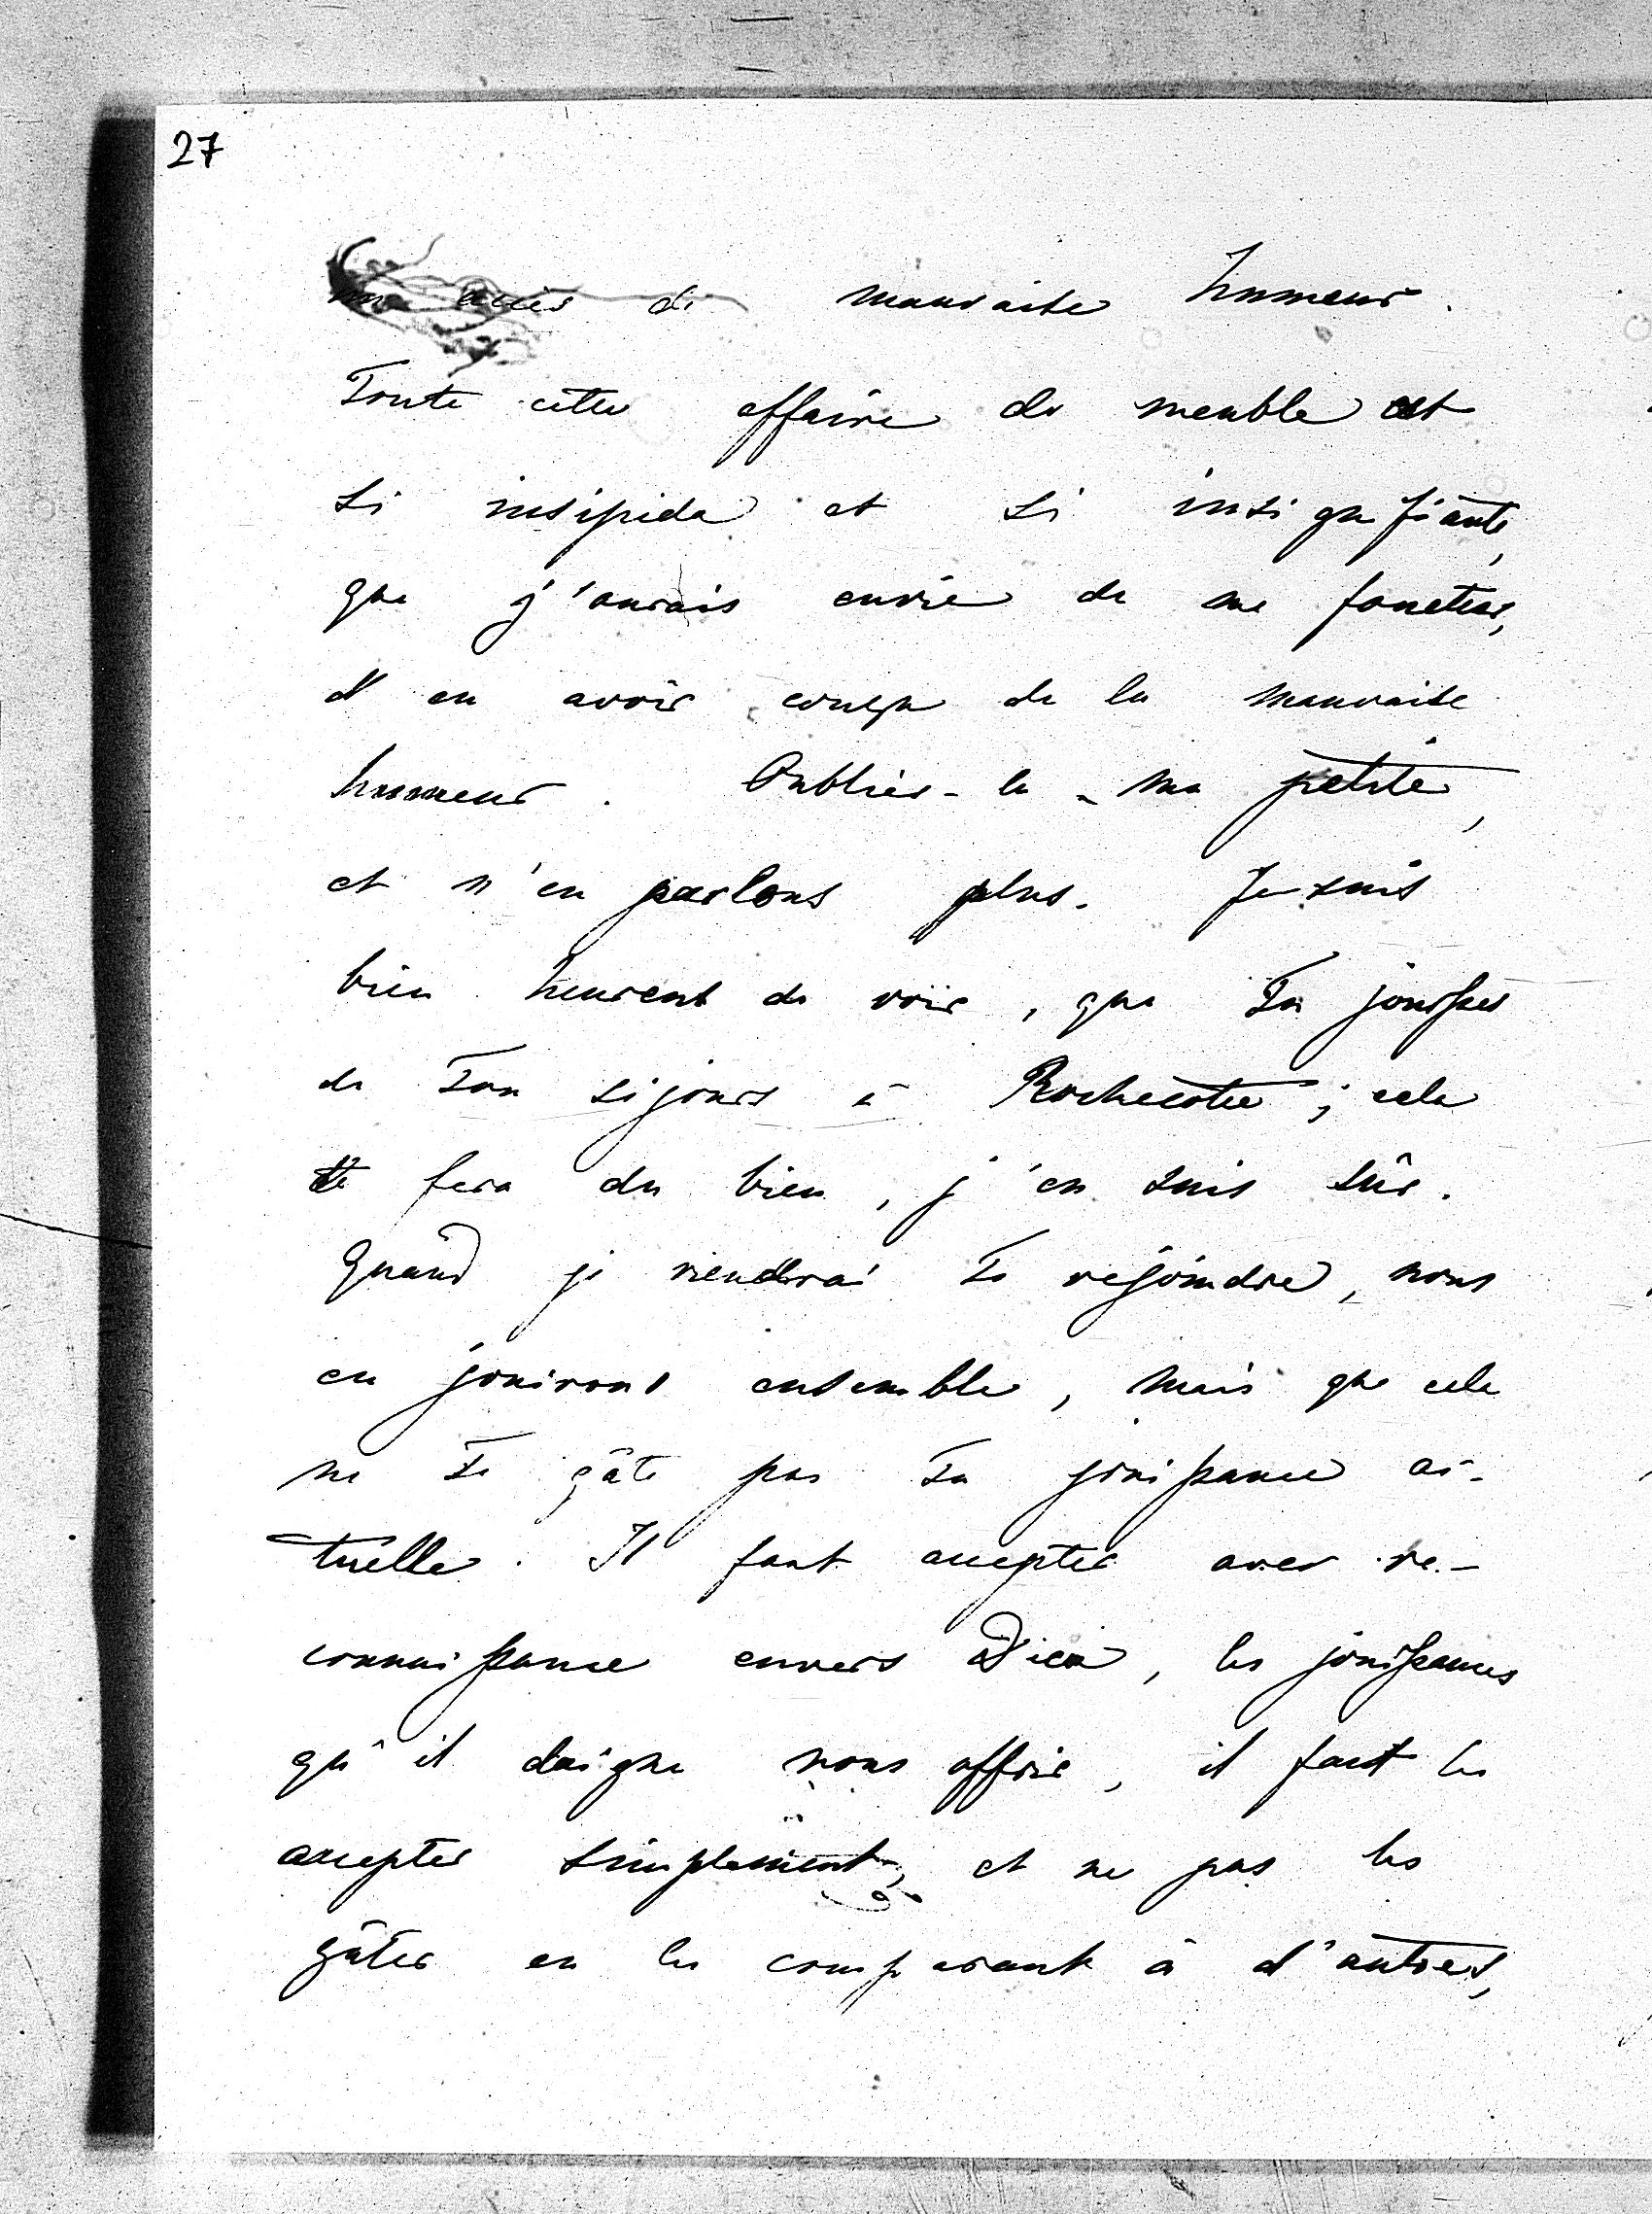 27
un accès de mauvaise humeur.
Toute cette affaire de meuble est
si insipide et si insignifiante,
que j'aurais envie de me fouetter,
d'en avoir conçu de la mauvaise
humeur. Oublies-la - ma petite,
et n'en parlons plus. Je suis
bien heureux de voir, que Tu jouisses
de Ton séjours à Rochecotte ; cela
te fera du bien, j'en suis sûr.
Quand je viendrai Te rejoindre, nous
en jouirons ensemble, mais que cela
ne Te gâte pas Ta jouissance ac-
tuelle. Il faut accepter avec re-
connaissance envers Dieu, les jouissances
qu'il daigne nous offrir, il faut les
accepter simplement, et ne pas les
gâter en les comparant à d'autres,